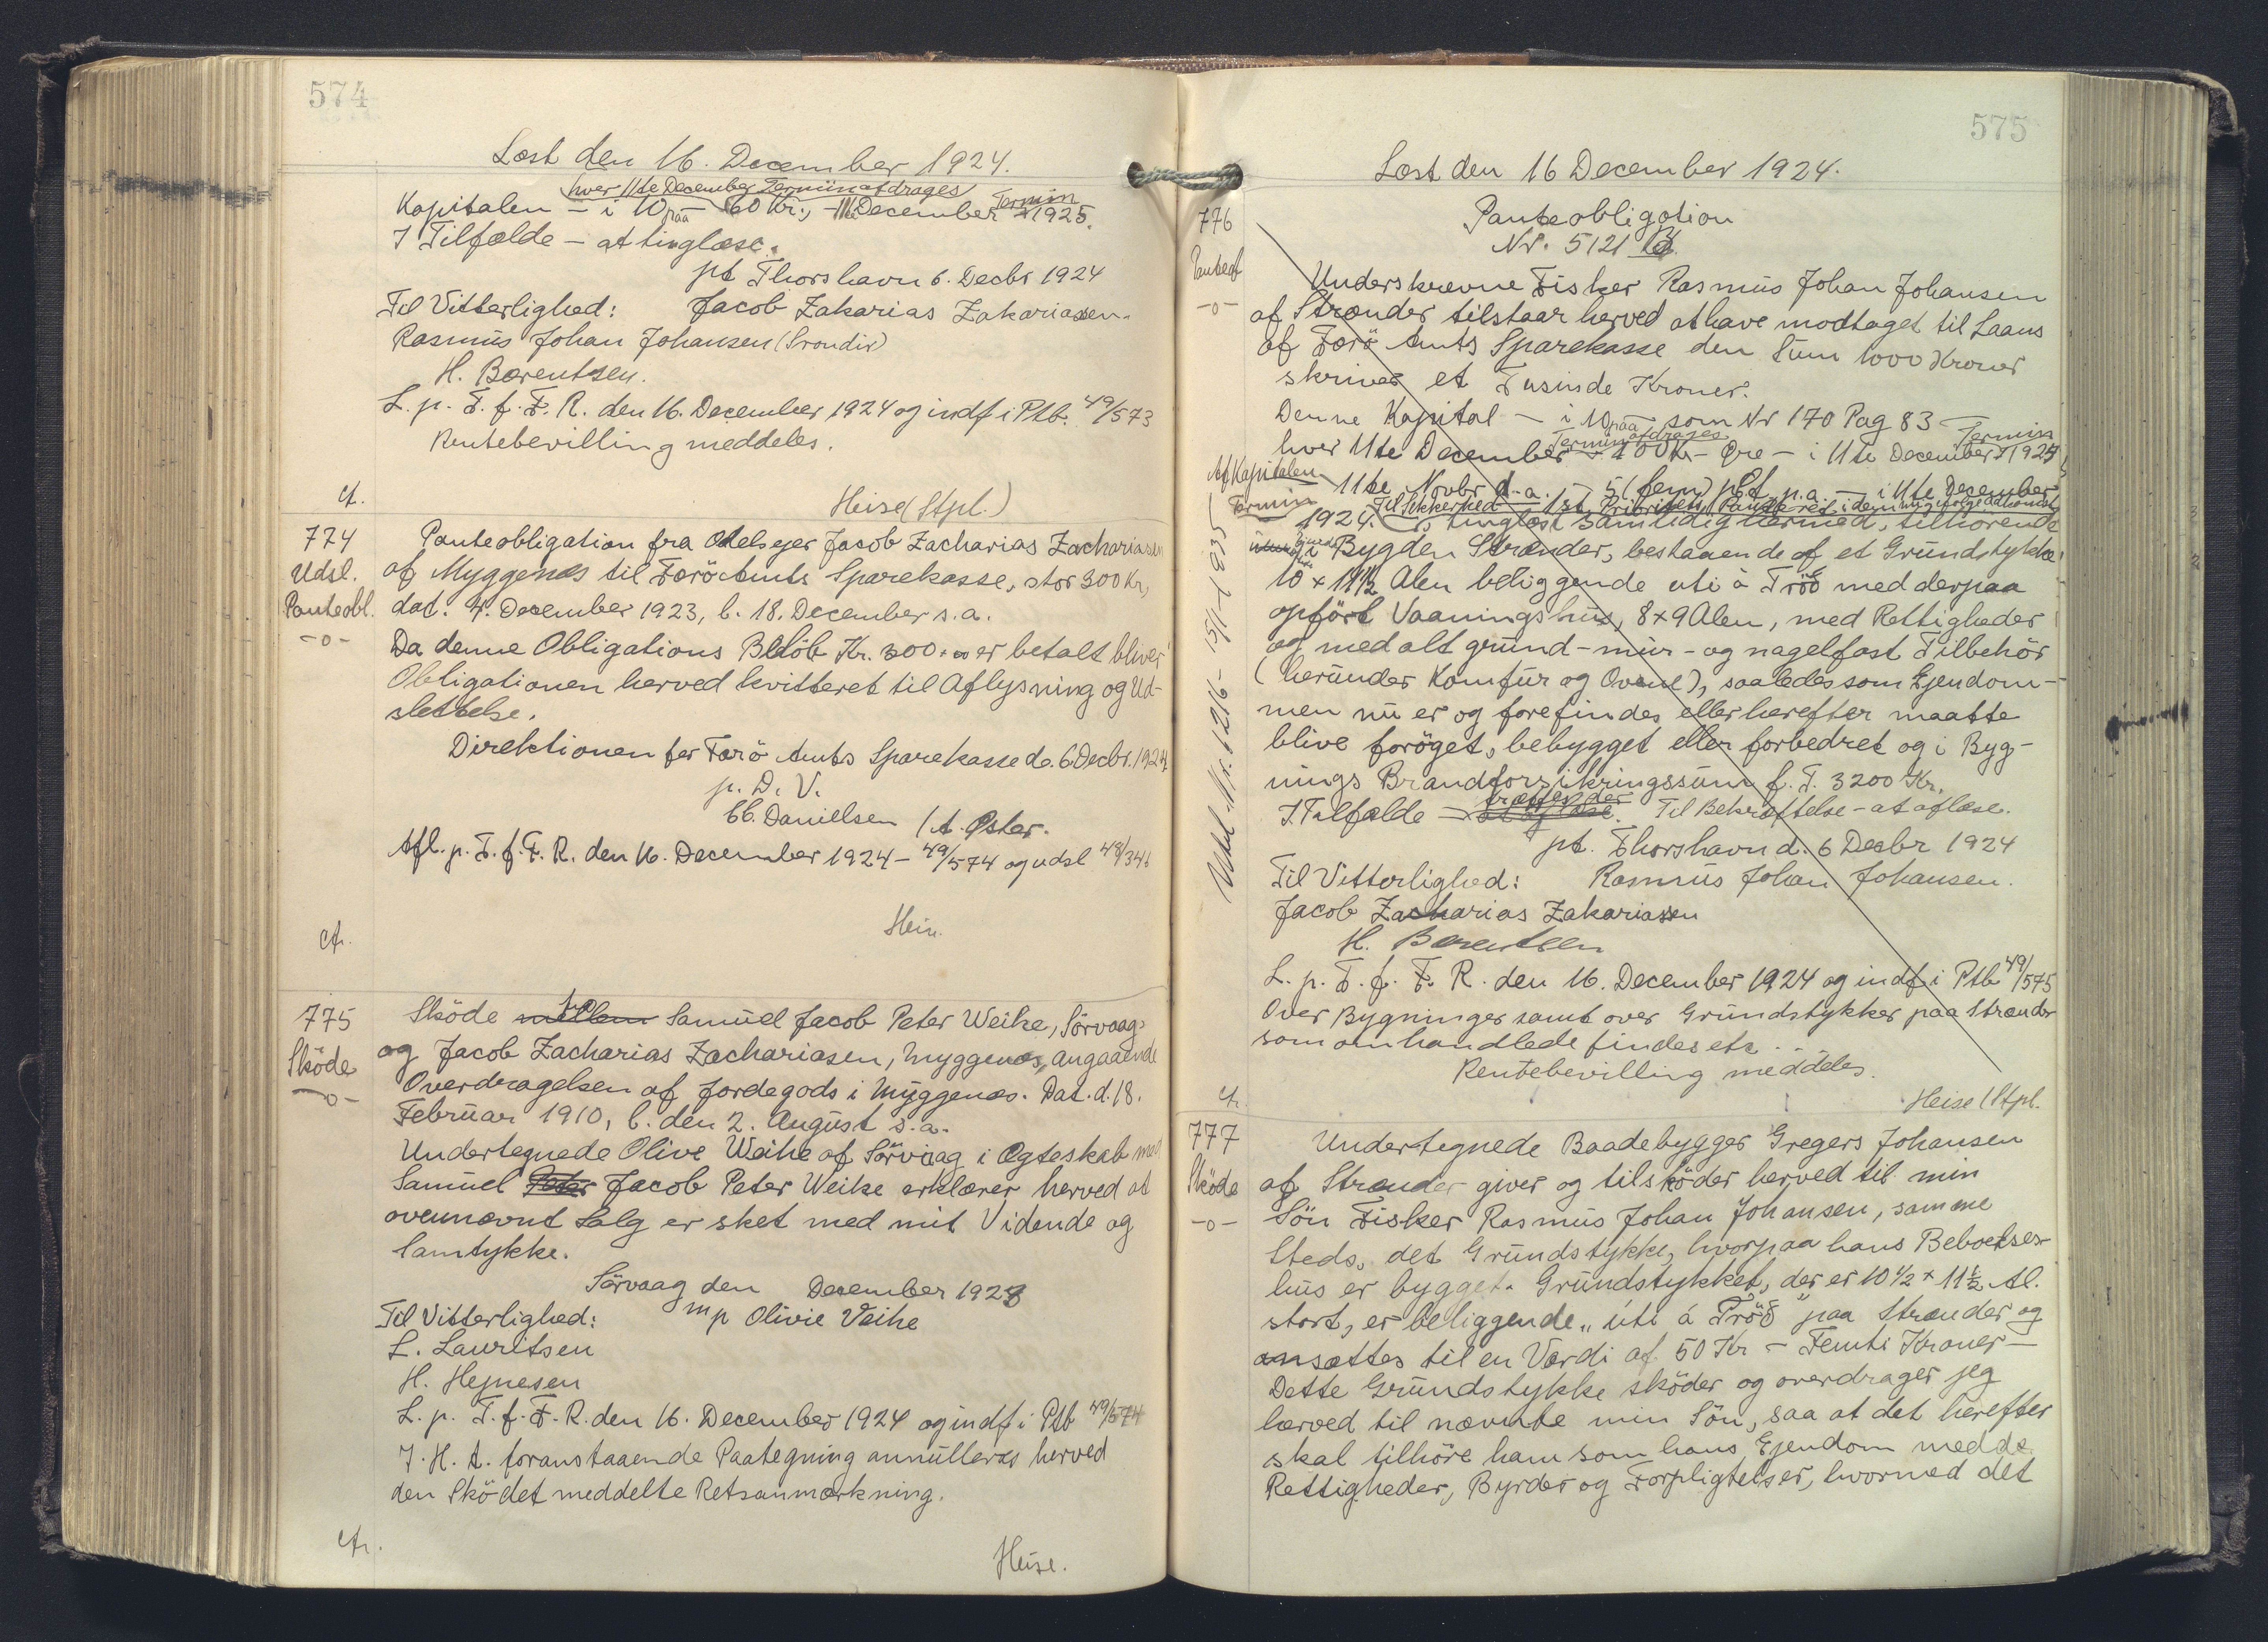 574
Læst den 16. December 1924.
hver 11te December Termin afdrages
Kapitalen – i 10 paa – 60 Kr., – 11te December Termin 1925.
I Tilfælde – at tinglæse.
pt Thorshavn 6. Decbr 1924
Til Vitterlighed: Jacob Zakarias Zakariasen.
Rasmus Johan Johansen
H. Bærentsen.
L. p. T. f. F. R. den 16. December 1924 og indf i Ptb. 49/573
Rentebevilling meddeles.
Heise (Stpl.)
774
Udsl.
Panteobl.
-o-
Panteobligation fra Odelsejer Jacob Zacharias Zachariasen
af Myggenæs til Færö Amts Sparekasse, stor 300 Kr,
dat. 4. December 1923, l. 18. December s.a.
Da denne Obligations Belöb Kr. 300.00 er betalt bliver
Obligationen herved kvitteret til Aflysning og Ud-
slettelse.
Direktionen for Færö Amts Sparekasse d. 6 Decbr. 1924
p. D. V.
Danielsen / A. Öster.
Afl. p. T. f. F. R. den 16. December 1924 – 49/574 og udsl 48/346
Heise.
775
Sköde
-o-
Sköde mellem fra Samuel Jacob Peter Weihe, Sörvaag
og Jacob Zacharias Zachariasen, Myggenæs, angaaende
Overdragelsen af Jordegods i Myggenæs. Dat. d. 18.
Februar 1910, l. den 2. August s.a.
Undertegnede Olive Weihe af Sörvaag i Ægteskab med
Samuel Peter Jacob Peter Weihe erklærer herved at
ovennævnt Salg er sket med mit Vidende og
Samtykke.
Sörvaag den December 1923
Til Vitterlighed: mp Olivie Veihe
L. Lauritsen
H. Hejnesen
L. p. T. f. F. R. den 16. December 1924 og indf i Ptb 49/574
I. H. t. foranstaaende Paategning annulleres herved
den Sködet meddelte Retsanmærkning.
Heise.
575
Læst den 16 December 1924.
776
Panteobl
-o-
Panteobligation
Nr. 5121 B.
Underskrevne Fisker Rasmus Johan Johansen
af Strænder tilstaar herved at have modtaget til Laans
af Færö Amts Sparekasse den Sum 1000 Kroner
skriver et Tusinde Kroner.
Denne Kapital – i 10 paa som Nr 170 Pag 83 –
hver 11te December Termin afdrages 100 Kr – Öre – i 11te December Termin 1925
Af Kapitalen 11te Novbr d.a. – 5 (fem) pCt p.a. – i 11te December
Termin 1924. Til Sikkerhed 1st Prioritets Panteret i den mig ifölge Adkomst
tinglæst samtidig hermed, tilhörende
i Bygden Strænder, bestaaende af et Grundstykke
10 x 11½ Alen beliggende uti à Tröð med derpaa
opfört Vaaningshus, 8 x 9 Alen, med Rettigheder
og med alt grund- mur- og nagelfast Tilbehör
(herunder Komfur og Ovene), saaledes som Ejendom-
men nu er og forefindes eller herefter maatte
blive foröget, bebygget eller forbedret og i Byg-
nings Brandforsikringssum f. T. 3200 Kr.
I Tilfælde – træffes der Til Bekræftelse – at aflæse.
pt. Thorshavn d. 6 Decbr 1924
Til Vitterlighed: Rasmus Johan Johansen.
Jacob Zacharias Zakariasen
H. Bærentsen
L. p. T. f. F. R. den 16. December 1924 og indf i Ptb 49/575
Over Bygninger samt over Grundstykker paa Strænder
som omhandlede findes etc...
Rentebevilling meddeles.
Heise (Stpl.
Udsl. Nr. 1216 – 15/1-1935
777
Sköde
-o-
Undertegnede Baadebygger Gregers Johansen
af Strænder giver og tilsköder herved til min
Sön Fisker Rasmus Johan Johansen, samme
Steds, det Grundstykke, hvorpaa hans Beboelses-
hus er bygget. Grundstykket, der er 10½ x 11½ Al.
stort, er beliggende „úti á Tröð" paa Strænder og
ansættes til en Værdi af 50 Kr – Femti Kroner –
Dette Grundstykke sköder og overdrager jeg
herved til nævnte min Sön, saa at det herefter
skal tilhöre ham som hans Ejendom med de
Rettigheder, Byrder og Forpligtelser, hvormed det